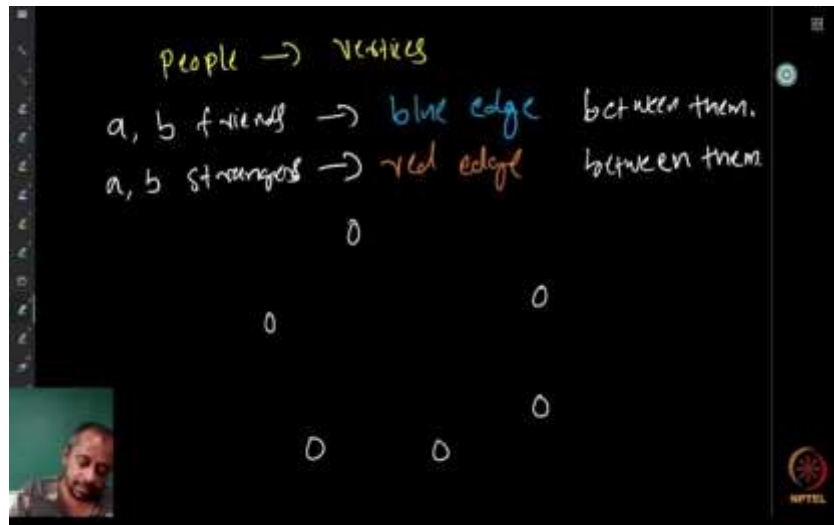 people → vertices
a, b friends → blue edge between them.
a, b strangers → red edge between them
NPTEL